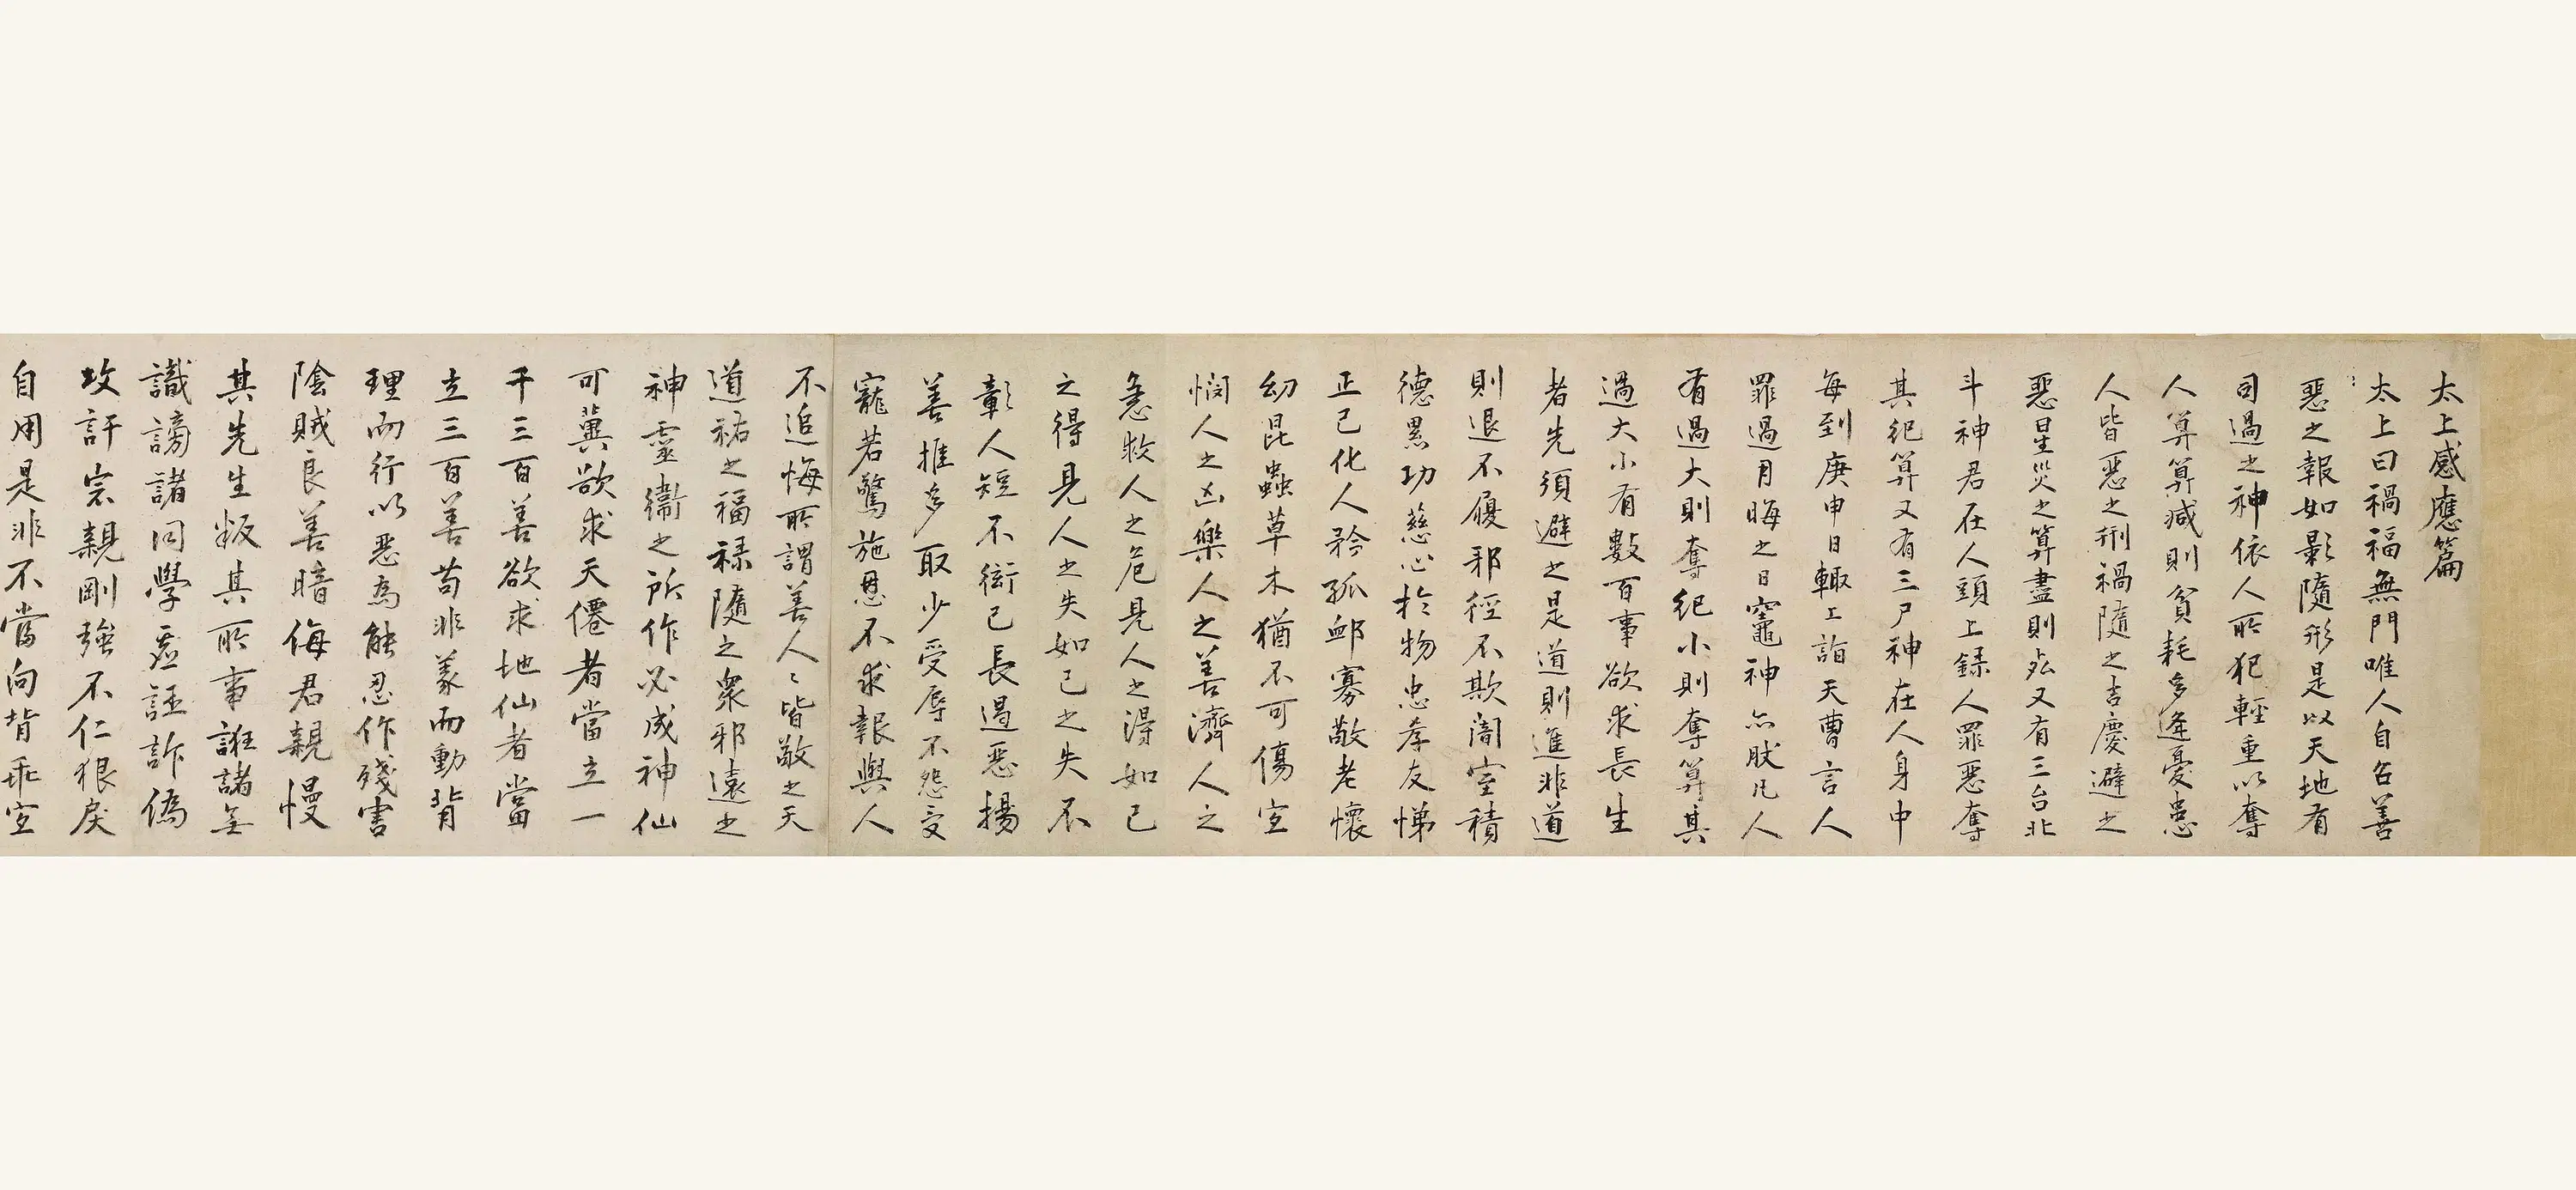 太上感應篇
太上曰禍福無門唯人自召善
惡之報如影隨形是以天地有
司過之神依人所犯輕重以奪
人算算減則貧耗多逢憂患
人皆惡之刑禍隨之吉慶避之
惡星災之算盡則死又有三台北
斗神君在人頭上錄人罪惡奪
其紀算又有三尸神在人身中
每到庚申日輒上詣天曹言人
罪過月晦之日竈神亦然凡人
有過大則奪紀小則奪算其
過大小有數百事欲求長生
者先須避之是道則進非道
則退不履邪徑不欺闇室積
德累功慈心於物忠孝友悌
正己化人矜孤卹寡敬老懷
幼昆蟲草木猶不可傷宜
憫人之凶樂人之善濟人之
急救人之危見人之得如己
之得見人之失如己之失不
彰人短不衒己長遏惡揚
善推多取少受辱不怨受
寵若驚施恩不求報與人
不追悔所謂善人〻皆敬之天
道祐之福祿隨之衆邪遠之
神靈衞之所作必成神仙
可冀欲求天僊者當立一
千三百善欲求地仙者當
立三百善苟非義而動背
理而行以惡為能忍作殘害
陰賊良善暗侮君親慢
其先生叛其所事誑諸無
識謗諸同學虛誣詐偽
攻訐宗親剛強不仁狠戾
自用是非不當向背乖宜